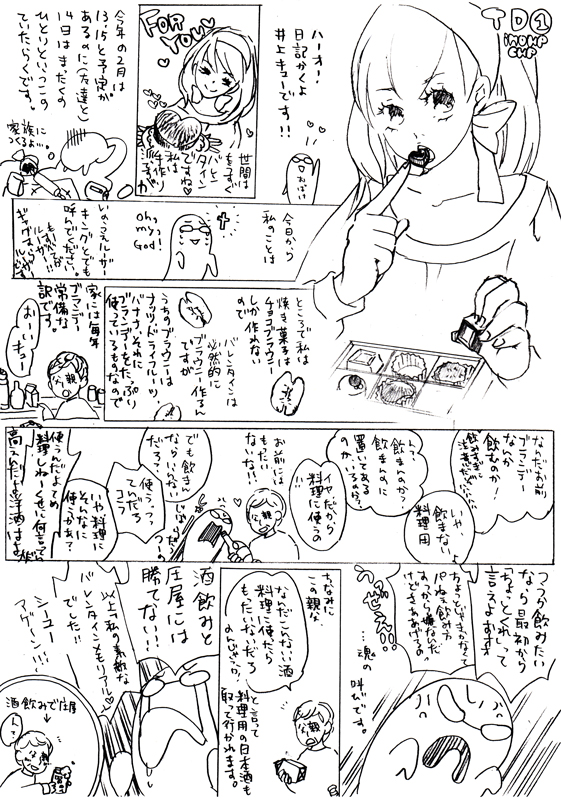 TD①
INOUE
CUP
ハーオ!
日記かくよ
井上キューです!!
FOR
YOU
世間は
もうすぐ
バレン
タイン
ですね
私は
手作
今年の2月は
13、15と予定が
あるのに(友達と)
14日はまだくの
ひとりというこの
ていたらくです。
家族に
つくるよ…
今日から
私のことは
Oh
my
God!
いのうえルーザー
キングとでも
呼んでください。
ところで私は
焼き菓子は
チョコブラウニー
しか作れない
ので
バレンタインは
必然的に
ブラウニー作るん
ですが
うちのブラウニーは
ナッツ、ドライフルーツ、
バナナ、それに
ブランデーをたっぷり
使っているものなので
家には毎年
ブランデー
常備な
訳です。
おーい
キュー
父親
なんだお前
ブランデー
なんか
飲むのか!
いや
飲まないよ
料理用
んっ?
飲まんのか?
飲まんのに
置いてある
のか、いるから?
イヤだから
料理に使うの
!!!
お前には
もったい
ないな!!
父親
でも飲まん
ならいらない
だろ?
使うって
てんだろ
コラ
いや料理に
そんなに
使うかあ?
使うんだよてめ
料理しねーくせに何言ってら
高えんだよ洋酒はよ
つうか飲みたい
なら最初から
「ちょっとくれ」って
言えよおすす
ちょっとどいきかなくて
パねえ飲み方
すっから嫌なんだ
けどそれでもあげるのっ
うぜえ!!
…魂の
叫びです。
ちなみに
この親父
なんだこんないい酒
料理に使たら
もったいないだろ
のんじゃうか?
と言って
料理用の日本酒も
取って行かれます。
父親
酒飲みと
圧屋には
勝てない!!
以上で私の素敵な
バレンタインメモリアル
でした!!
シーユー
アゲーン!!!
酒飲みで圧屋
父親